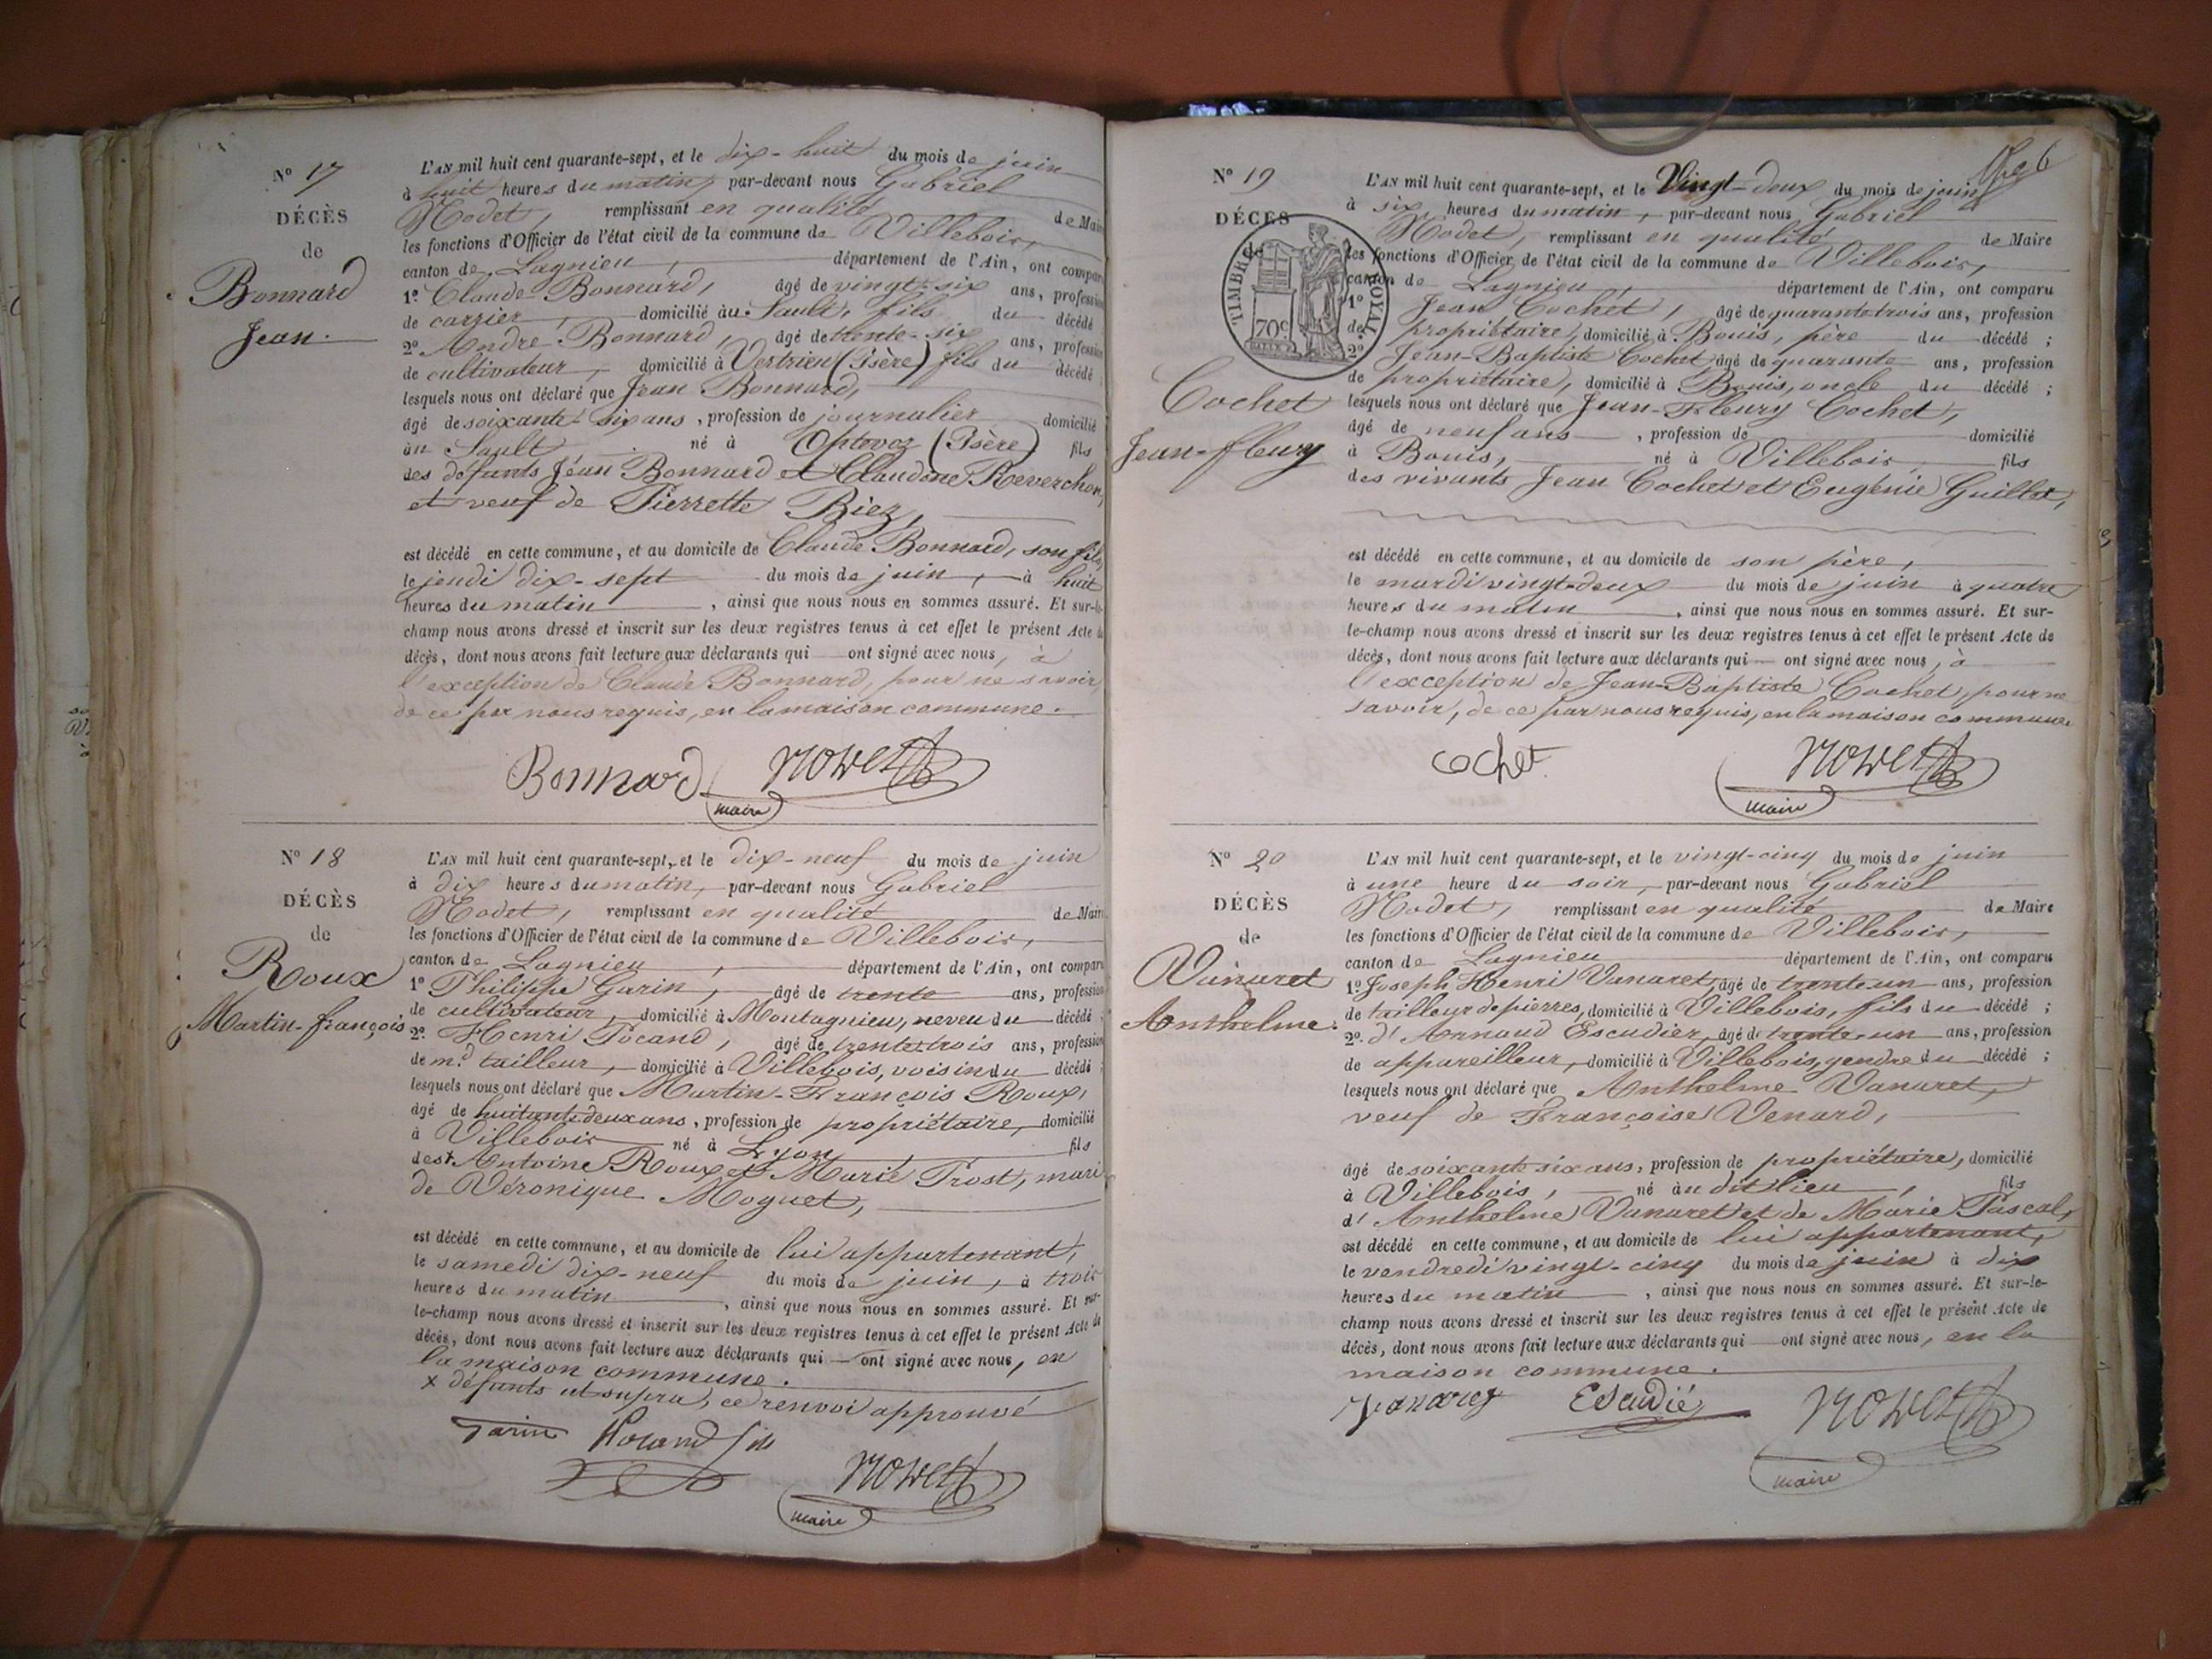 N° 17
DÉCÈS
de
Bonnard
Jean.
L'AN mil huit cent quarante-sept, et le dix-huit du mois de juin
à huit heures du matin, par-devant nous Gabriel
Nodet, remplissant en qualité de Mair
les fonctions d'Officier de l'état civil de la commune de Villebois,
canton de Lagnieu, département de l'Ain, ont compar
1° Claude Bonnard, âgé de vingt-six ans, profession
de carrier, domicilié au Sault, fils du décédé
2° André Bonnard, âgé de trente-six ans, profession
de cultivateur, domicilié à Vertrieu (Isère) fils du décédé
lesquels nous ont déclaré que Jean Bonnard,
âgé de soixante-six ans, profession de journalier domicilié
au Sault né à Optevoz (Isère) fils
des défunts Jean Bonnard et Claudine Reverchon,
et veuf de Pierrette Biez,
est décédé en cette commune, et au domicile de Claude Bonnard, son fils,
le jeudi dix-sept du mois de juin, à huit
heures du matin, ainsi que nous nous en sommes assuré. Et sur-le-
champ nous avons dressé et inscrit sur les deux registres tenus à cet effet le présent Acte de
décès, dont nous avons fait lecture aux déclarants qui ont signé avec nous, à
l'exception de Claude Bonnard, pour ne savoir,
de ce par nous requis, en la maison commune.
Bonnard Nodet
maire
N° 18
DÉCÈS
de
Roux
Martin-françois
L'AN mil huit cent quarante-sept, et le dix-neuf du mois de juin
à dix heures du matin, par-devant nous Gabriel
Nodet, remplissant en qualité de Mair
les fonctions d'Officier de l'état civil de la commune de Villebois,
canton de Lagnieu, département de l'Ain, ont comparu
1° Philippe Garin, âgé de trente ans, profession
de cultivateur, domicilié à Montagnieu, neveu du décédé
2° Henri Pocand, âgé de trente-trois ans, profession
de md tailleur, domicilié à Villebois, voisin du décédé
lesquels nous ont déclaré que Martin-François Roux,
âgé de huitante deux ans, profession de propriétaire, domicilié
à Villebois né à Lyon, fils
des x Antoine Roux et Marie Prost, mari
de Véronique Moguet,
est décédé en cette commune, et au domicile de lui appartenant,
le samedi dix-neuf du mois de juin, à trois
heures du matin, ainsi que nous nous en sommes assuré. Et sur-
le-champ nous avons dressé et inscrit sur les deux registres tenus à cet effet le présent Acte de
décès, dont nous avons fait lecture aux déclarants qui ont signé avec nous, en
la maison commune.
x défunts ut supra, ce renvoi approuvé
Garin Pocand fils
Nodet
maire
N° 19
DÉCÈS
de
TIMBRE ROYAL
70c
Cochet
Jean-fleury
L'AN mil huit cent quarante-sept, et le Vingt-deux du mois de juin
à six heures du matin, par-devant nous Gabriel
Nodet, remplissant en qualité de Maire
les fonctions d'Officier de l'état civil de la commune de Villebois,
canton de Lagnieu, département de l'Ain, ont comparu
1° Jean Cochet, âgé de quarante-trois ans, profession
de propriétaire, domicilié à Bouis, père du décédé ;
2° Jean-Baptiste Cochet, âgé de quarante ans, profession
de propriétaire, domicilié à Bouis, oncle du décédé ;
lesquels nous ont déclaré que Jean-Fleury Cochet,
âgé de neuf ans, profession de domicilié
à Bouis, né à Villebois, fils
des vivants Jean Cochet et Eugénie Guillet,
est décédé en cette commune, et au domicile de son père,
le mardi vingt-deux du mois de juin à quatre
heures du matin, ainsi que nous nous en sommes assuré. Et sur-
le-champ nous avons dressé et inscrit sur les deux registres tenus à cet effet le présent Acte de
décès, dont nous avons fait lecture aux déclarants qui ont signé avec nous, à
l'exception de Jean-Baptiste Cochet, pour ne
savoir, de ce par nous requis, en la maison commune.
cochet Nodet
maire
N° 20
DÉCÈS
de
Vanaret
Anthelme.
L'AN mil huit cent quarante-sept, et le vingt-cinq du mois de juin
à une heure du soir, par-devant nous Gabriel
Nodet, remplissant en qualité de Maire
les fonctions d'Officier de l'état civil de la commune de Villebois,
canton de Lagnieu département de l'Ain, ont comparu
1° Joseph Henri Vanaret, âgé de trente-un ans, profession
de tailleur de pierres, domicilié à Villebois, fils du décédé ;
2° d'Arnaud Escudier, âgé de trente-un ans, profession
de appareilleur, domicilié à Villebois, gendre du décédé ;
lesquels nous ont déclaré que Anthelme Vanaret,
veuf de Françoise Venard,
âgé de soixante six ans, profession de propriétaire, domicilié
à Villebois, né au dit lieu, fils
d'Anthelme Vanaret et de Marie Pascal,
est décédé en cette commune, et au domicile de lui appartenant,
le vendredi vingt-cinq du mois de juin à dix
heures du matin, ainsi que nous nous en sommes assuré. Et sur-le-
champ nous avons dressé et inscrit sur les deux registres tenus à cet effet le présent Acte de
décès, dont nous avons fait lecture aux déclarants qui ont signé avec nous, en la
maison commune.
Vanarey Escudié Nodet
maire